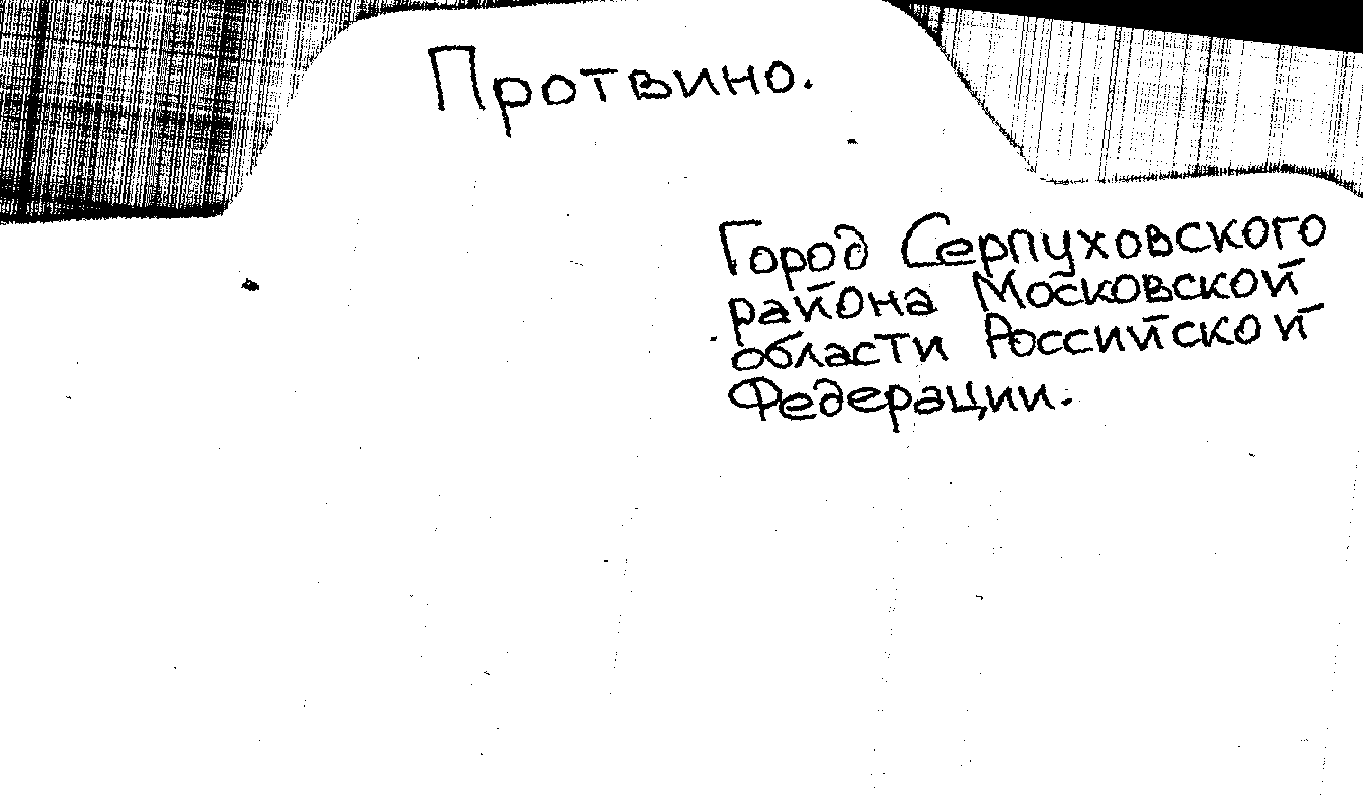 Протвино.
Город Серпуховского
района Московской
области Российской
Федерации.